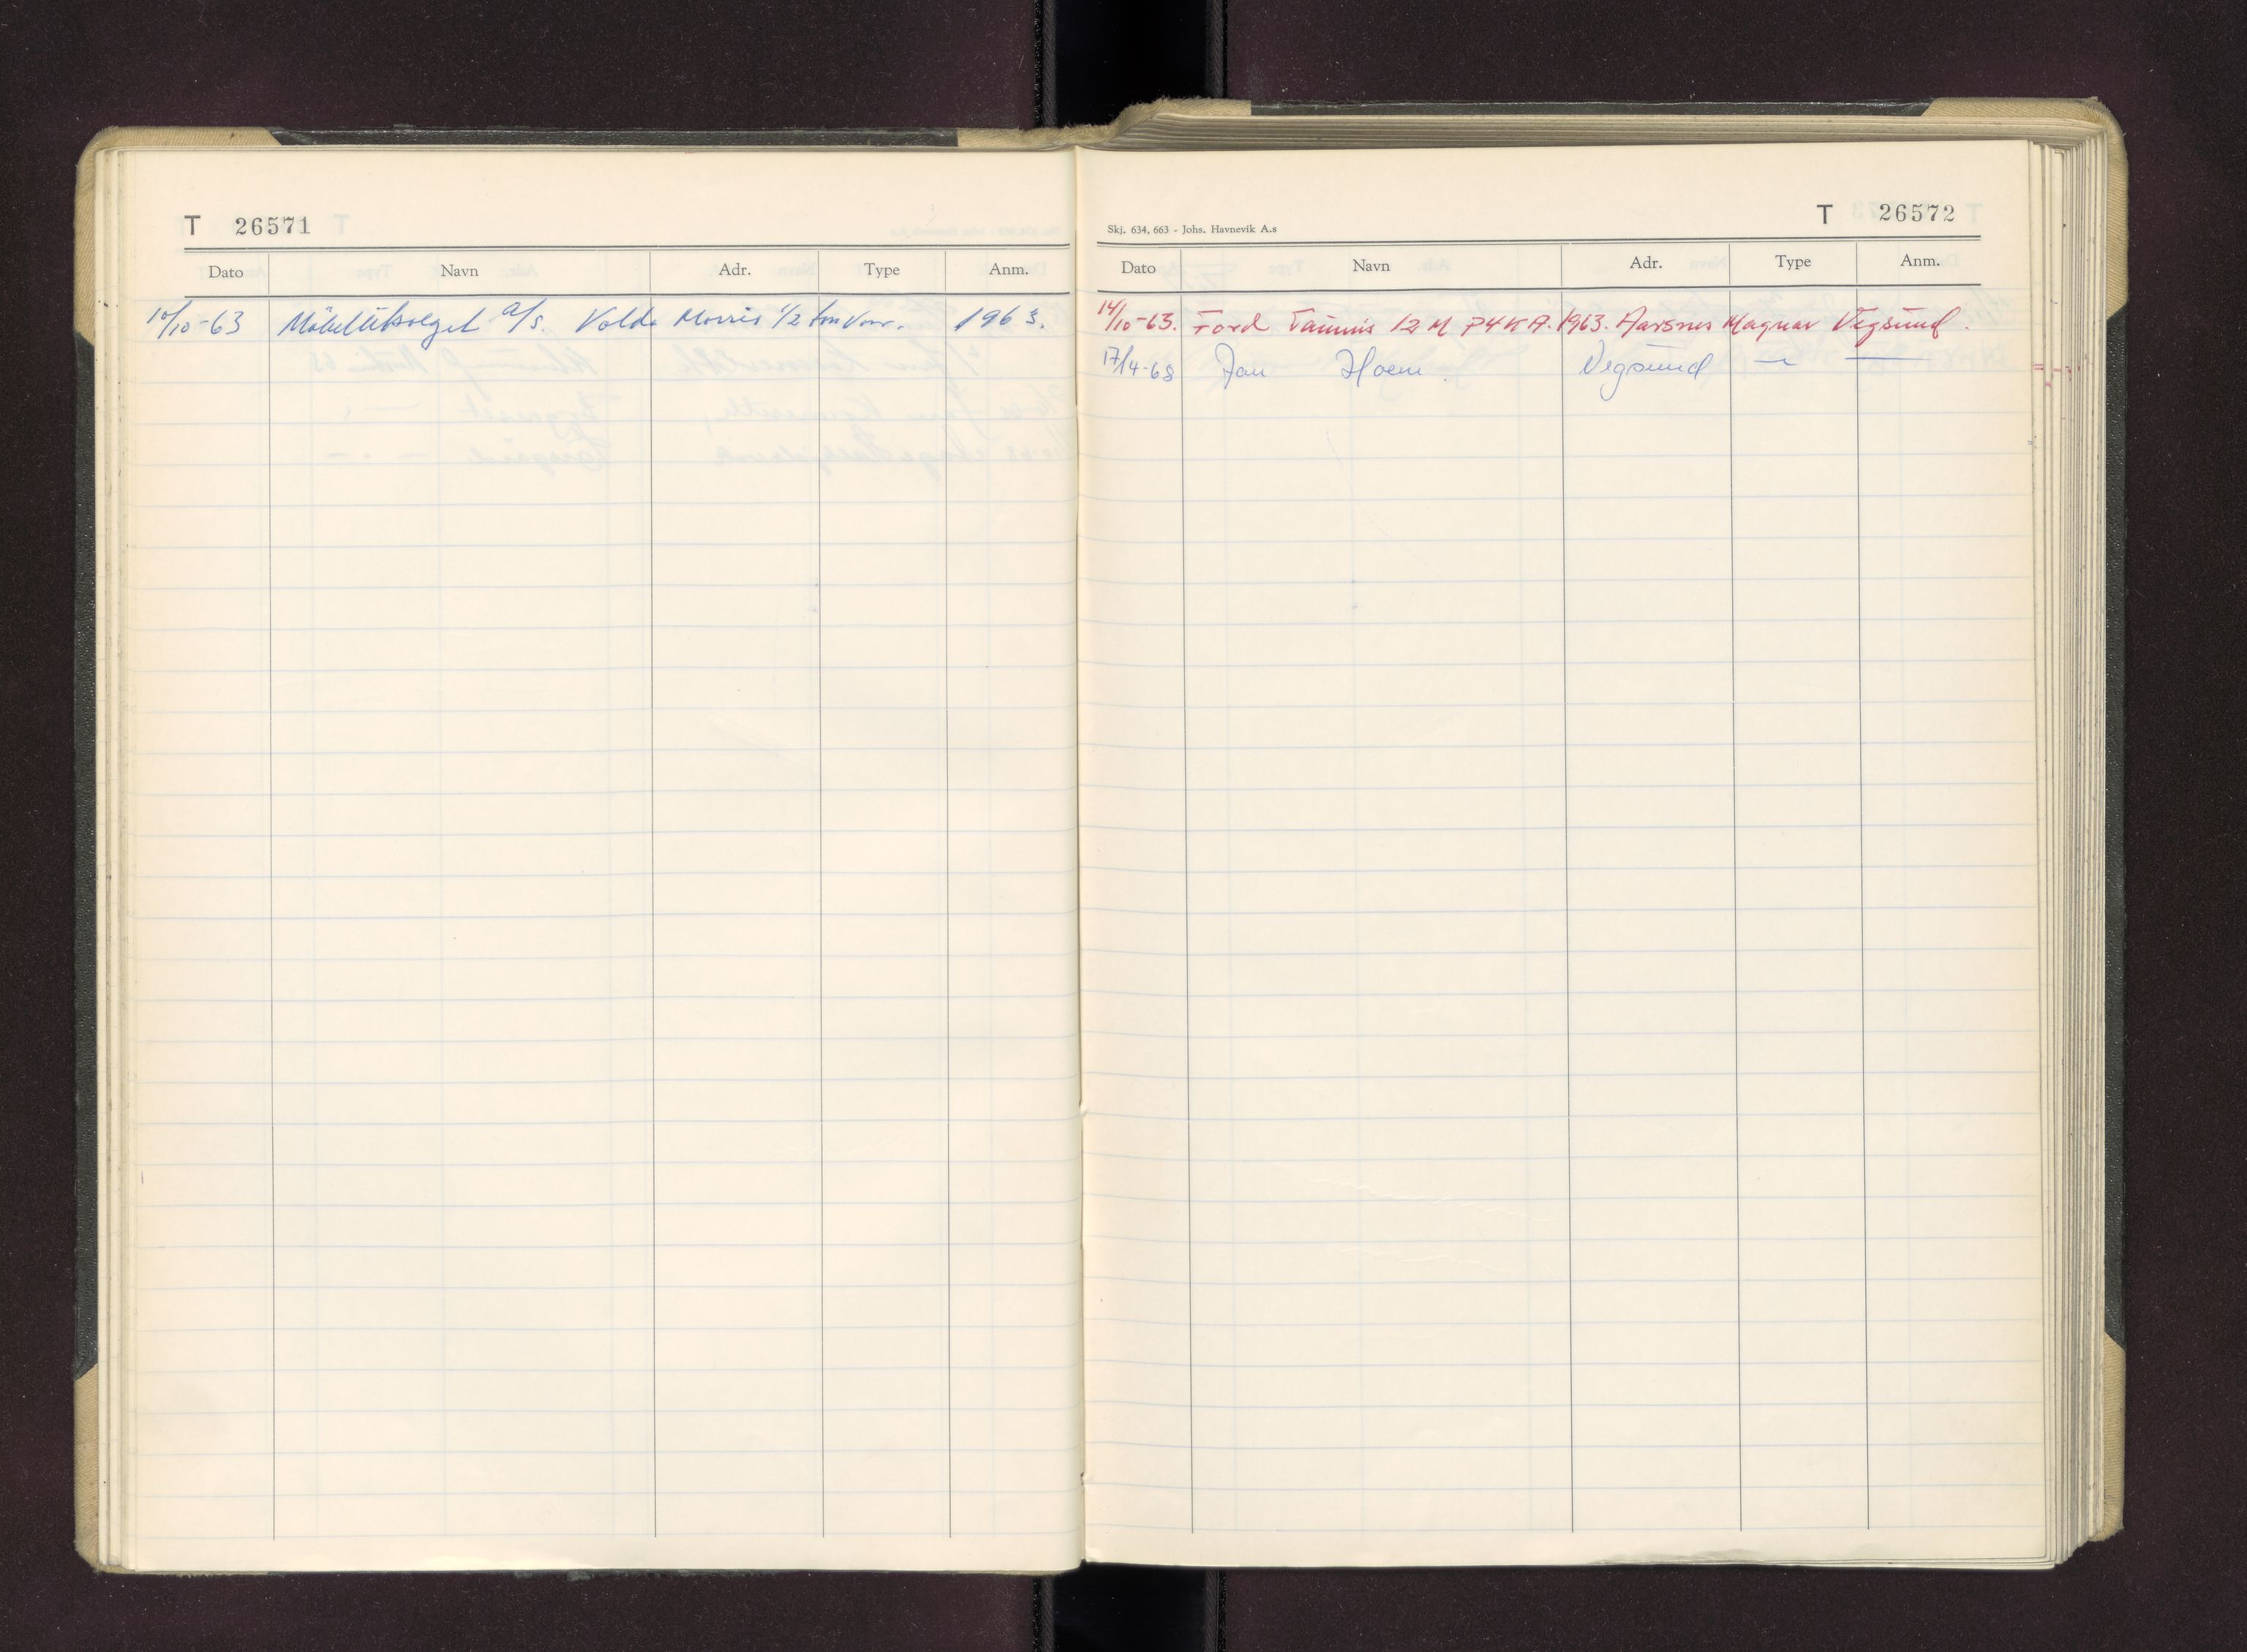 T 26571
Dato Navn Adr. Type Anm.
10/10-63 Möbelutsalget a/s. Volda Morris 1/2 ton Varev. 1963.
T 26572
Skj. 634, 663 - Johs. Havnevik A.s
Dato Navn Adr. Type Anm.
14/10-63. Ford Taunus 12 M P4 KA. 1963. Aarsnes Magnar Vegsund.
17/4-68 Jan Hoem. Vegsund — —